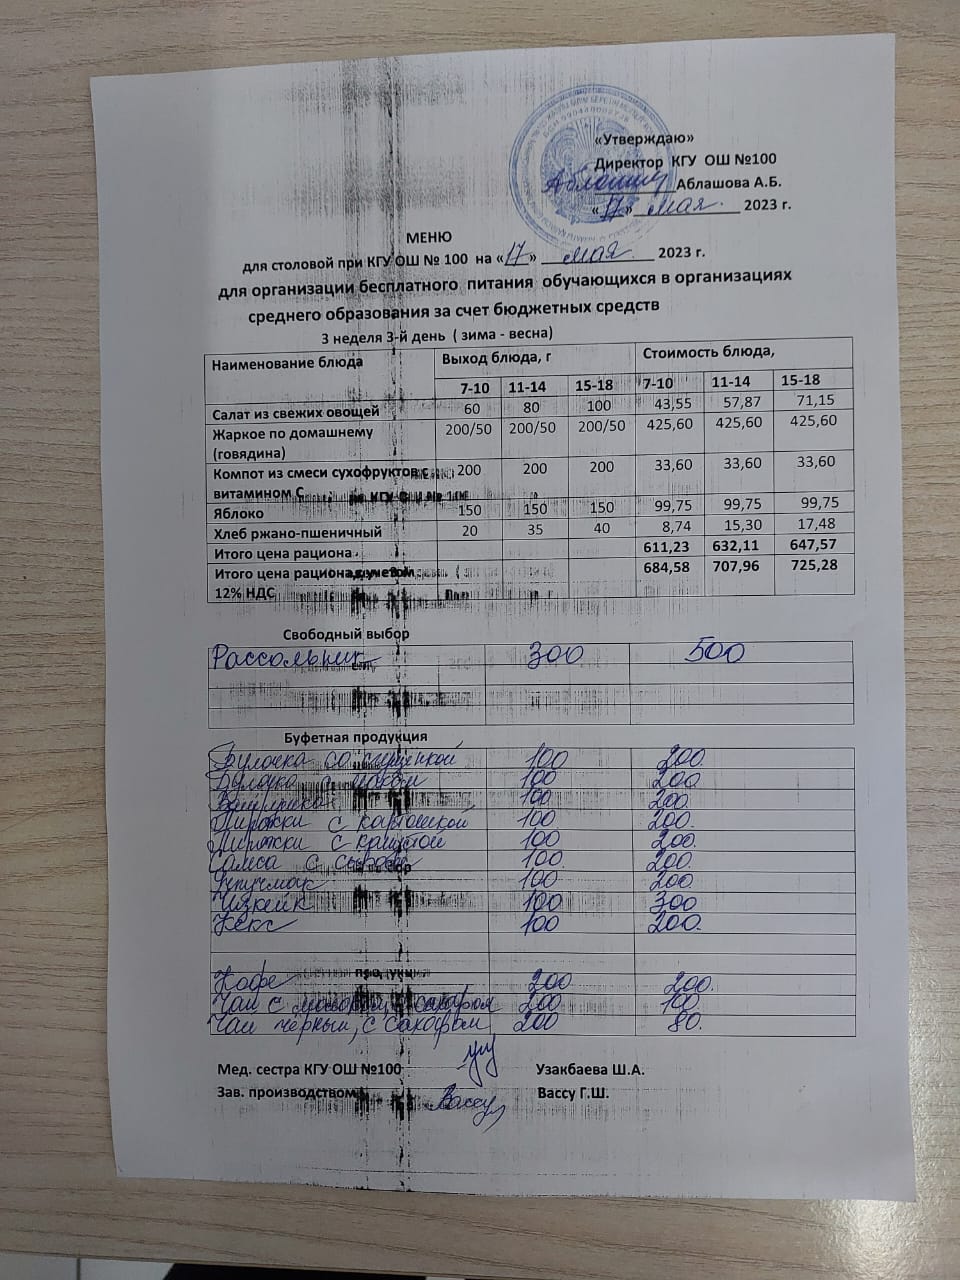 «Утверждаю»
Директор КГУ ОШ №100
Аблашова А.Б.
«17» мая 2023 г.
МЕНЮ
для столовой при КГУ ОШ № 100 на «17» мая 2023 г.
для организации бесплатного питания обучающихся в организациях
среднего образования за счет бюджетных средств
3 неделя 3-й день ( зима - весна)
Наименование блюда Выход блюда, г Стоимость блюда,
7-10 11-14 15-18 7-10 11-14 15-18
Салат из свежих овощей 60 80 100 43,55 57,87 71,15
Жаркое по домашнему 200/50 200/50 200/50 425,60 425,60 425,60
(говядина)
Компот из смеси сухофруктов с 200 200 200 33,60 33,60 33,60
витамином С
Яблоко 150 150 150 99,75 99,75 99,75
Хлеб ржано-пшеничный 20 35 40 8,74 15,30 17,48
Итого цена рациона 611,23 632,11 647,57
Итого цена рациона с учетом 684,58 707,96 725,28
12% НДС
Свободный выбор
Рассольник 300 500
Буфетная продукция
Булочка со сгущенкой 100 200
Булочка с 100 200
100 200
Пирожки с картошкой 100 200
Пирожки с капустой 100 200
Самса с сыром 100 200
100 200
Чизкейк 100 300
Кекс 100 200
Кофе 200 200
Чай с молоком, с сахаром 200 100
Чай черный, с сахаром 200 80
Мед. сестра КГУ ОШ №100 Узакбаева Ш.А.
Зав. производством Вассу Г.Ш.